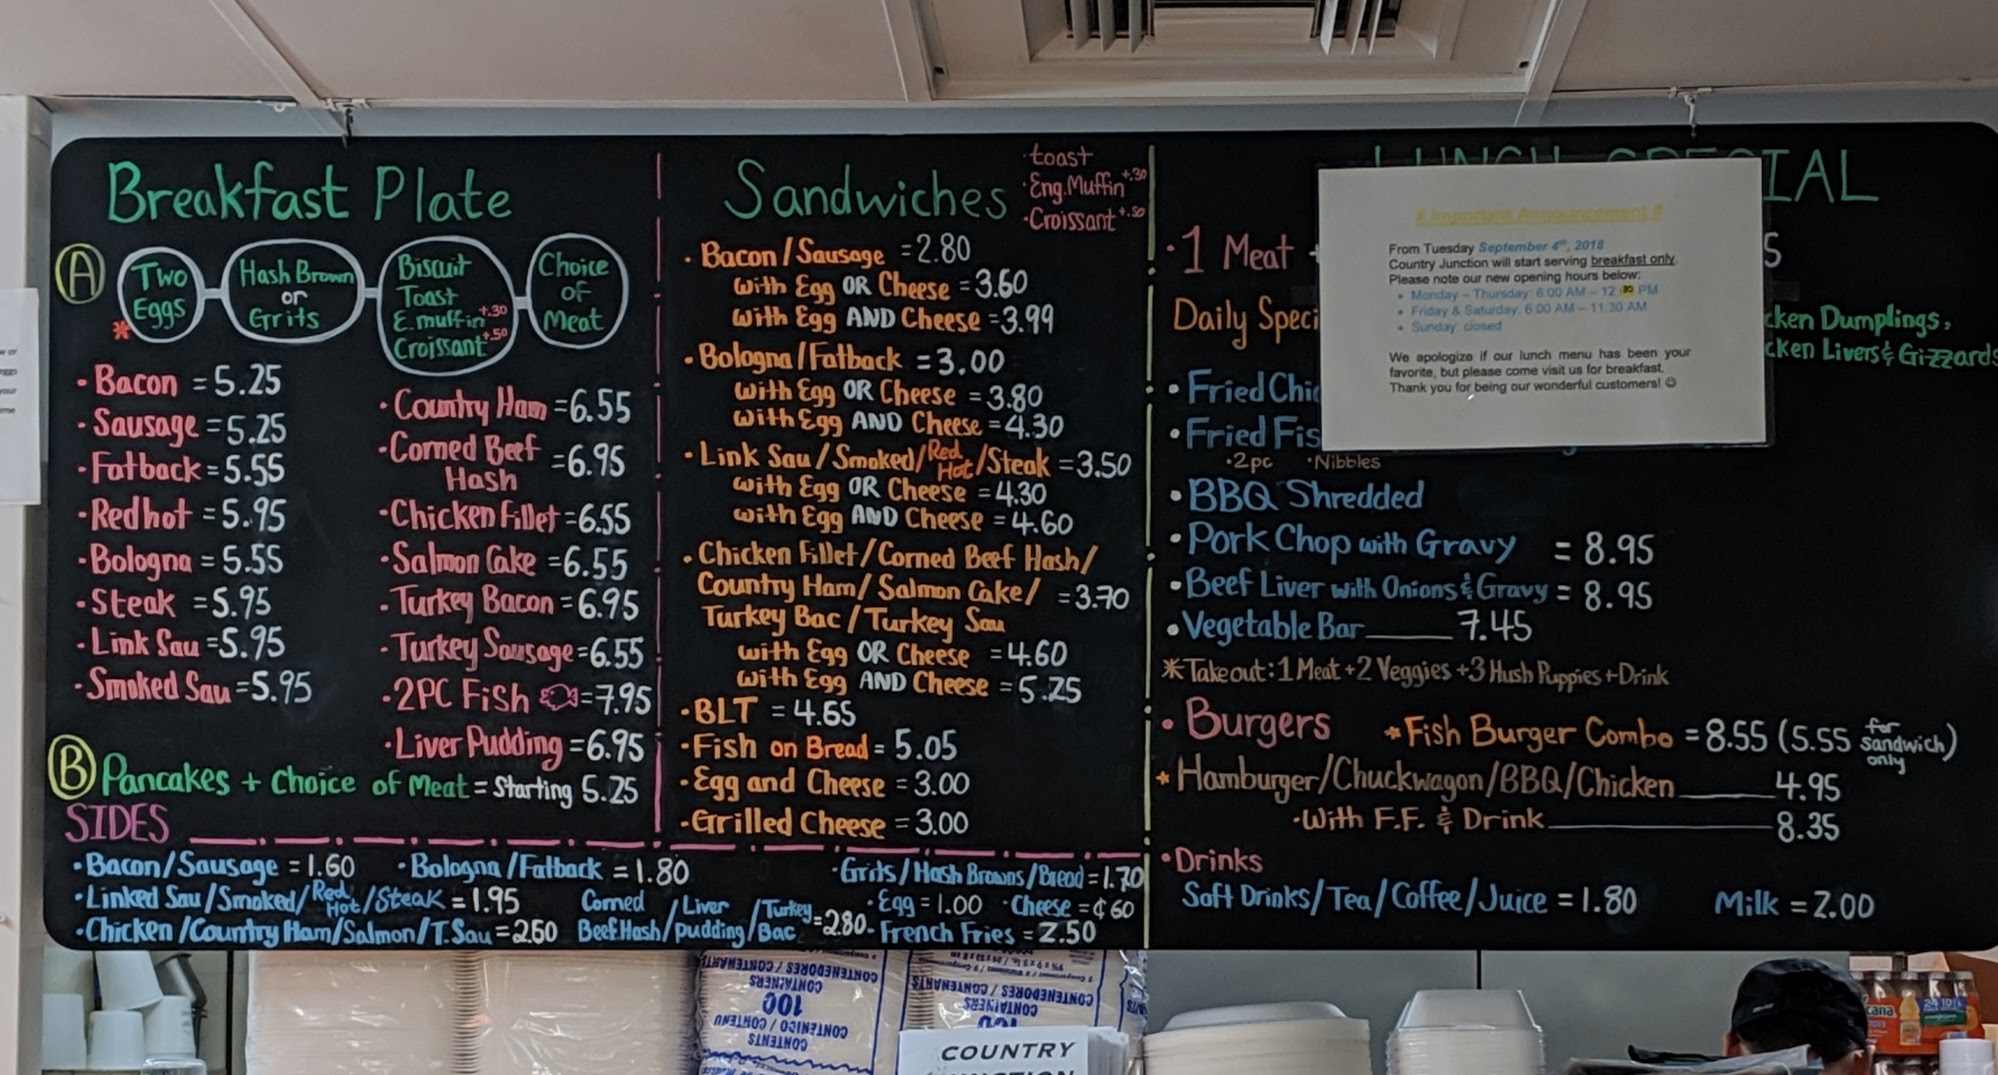 Breakfast Plate
A
Two
Eggs
*
Hash Brown
or
Grits
Biscuit
Toast
E.muffin +.30
Croissant +.50
Choice
of
Meat
• Bacon = 5.25
• Sausage = 5.25
• Fatback = 5.55
• Redhot = 5.95
• Bologna = 5.55
• Steak = 5.95
• Link Sau = 5.95
• Smoked Sau = 5.95
• Country Ham = 6.55
• Corned Beef
Hash = 6.95
• Chicken Fillet = 6.55
• Salmon Cake = 6.55
• Turkey Bacon = 6.95
• Turkey Sausage = 6.55
• 2PC Fish = 7.95
• Liver Pudding = 6.95
B Pancakes + Choice of Meat = Starting 5.25
SIDES
• Bacon/Sausage = 1.60
• Bologna/Fatback = 1.80
• Grits/Hash Browns/Bread = 1.70
• Linked Sau/Smoked/Red Hot/Steak = 1.95
• Chicken/Country Ham/Salmon/T.Sau = 2.60
Corned /Liver /Turkey
Beef Hash/pudding/Bac = 2.80
• Egg = 1.00 • Cheese = ¢60
• French Fries = 2.50
Sandwiches
• toast
• Eng.Muffin +.30
• Croissant +.50
• Bacon/Sausage = 2.80
with Egg OR Cheese = 3.60
with Egg AND Cheese = 3.99
• Bologna/Fatback = 3.00
with Egg OR Cheese = 3.80
with Egg AND Cheese = 4.30
• Link Sau/Smoked/Red Hot/Steak = 3.50
with Egg OR Cheese = 4.30
with Egg AND Cheese = 4.60
• Chicken Fillet/Corned Beef Hash/
Country Ham/Salmon Cake/ = 3.70
Turkey Bac/Turkey Sau
with Egg OR Cheese = 4.60
with Egg AND Cheese = 5.25
• BLT = 4.65
• Fish on Bread = 5.05
• Egg and Cheese = 3.00
• Grilled Cheese = 3.00
LUNCH SPECIAL
• 1 Meat +
Daily Speci
cken Dumplings,
cken Livers & Gizzards
# Important Announcement #
From Tuesday September 4th, 2018
Country Junction will start serving breakfast only.
Please note our new opening hours below:
• Monday – Thursday: 6:00 AM – 12:30 PM
• Friday & Saturday: 6:00 AM – 11:30 AM
• Sunday: closed
We apologize if our lunch menu has been your
favorite, but please come visit us for breakfast.
Thank you for being our wonderful customers! ☺
• Fried Chic
• Fried Fis
• 2pc • Nibbles
• BBQ Shredded
• Pork Chop with Gravy = 8.95
• Beef Liver with Onions & Gravy = 8.95
• Vegetable Bar 7.45
* Takeout: 1 Meat + 2 Veggies + 3 Hush Puppies + Drink
• Burgers
* Fish Burger Combo = 8.55 (5.55 for sandwich only)
* Hamburger/Chuckwagon/BBQ/Chicken 4.95
• With F.F. & Drink 8.35
• Drinks
Soft Drinks/Tea/Coffee/Juice = 1.80
Milk = 2.00
CONTENEDORES / CONTENANTS
CONTAINERS
100
CONTENIDO / CONTENU
CONTENTS
CONTENEDORES / CONTENANTS
CONTAINERS
100
COUNTRY
JUNCTION